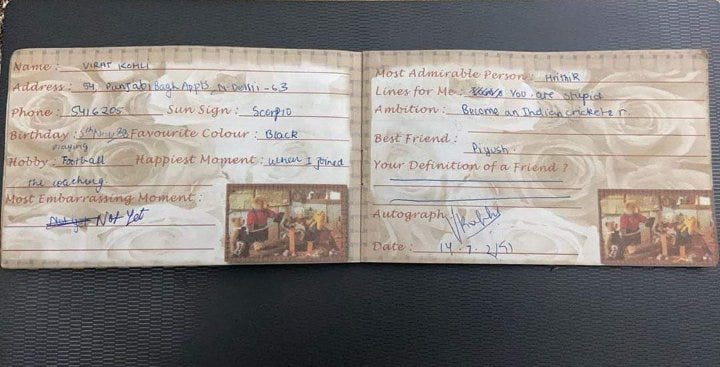 Name : VIRAT KOHLI
Address : 54, Punjabi Bagh Appts, N. Delhi - 63
Phone : 5416205 Sun Sign : Scorpio
Birthday : 5th Nov, 88 Favourite Colour : Black
Hobby : Playing Football Happiest Moment : when I joined
the coaching
Most Embarrassing Moment :
Not Yet
Most Admirable Person : Hrithik
Lines for Me : You are stupid
Ambition : Become an Indian cricketer.
Best Friend :
Piyush
Your Definition of a Friend ?
Autograph
Date : 14. 7.